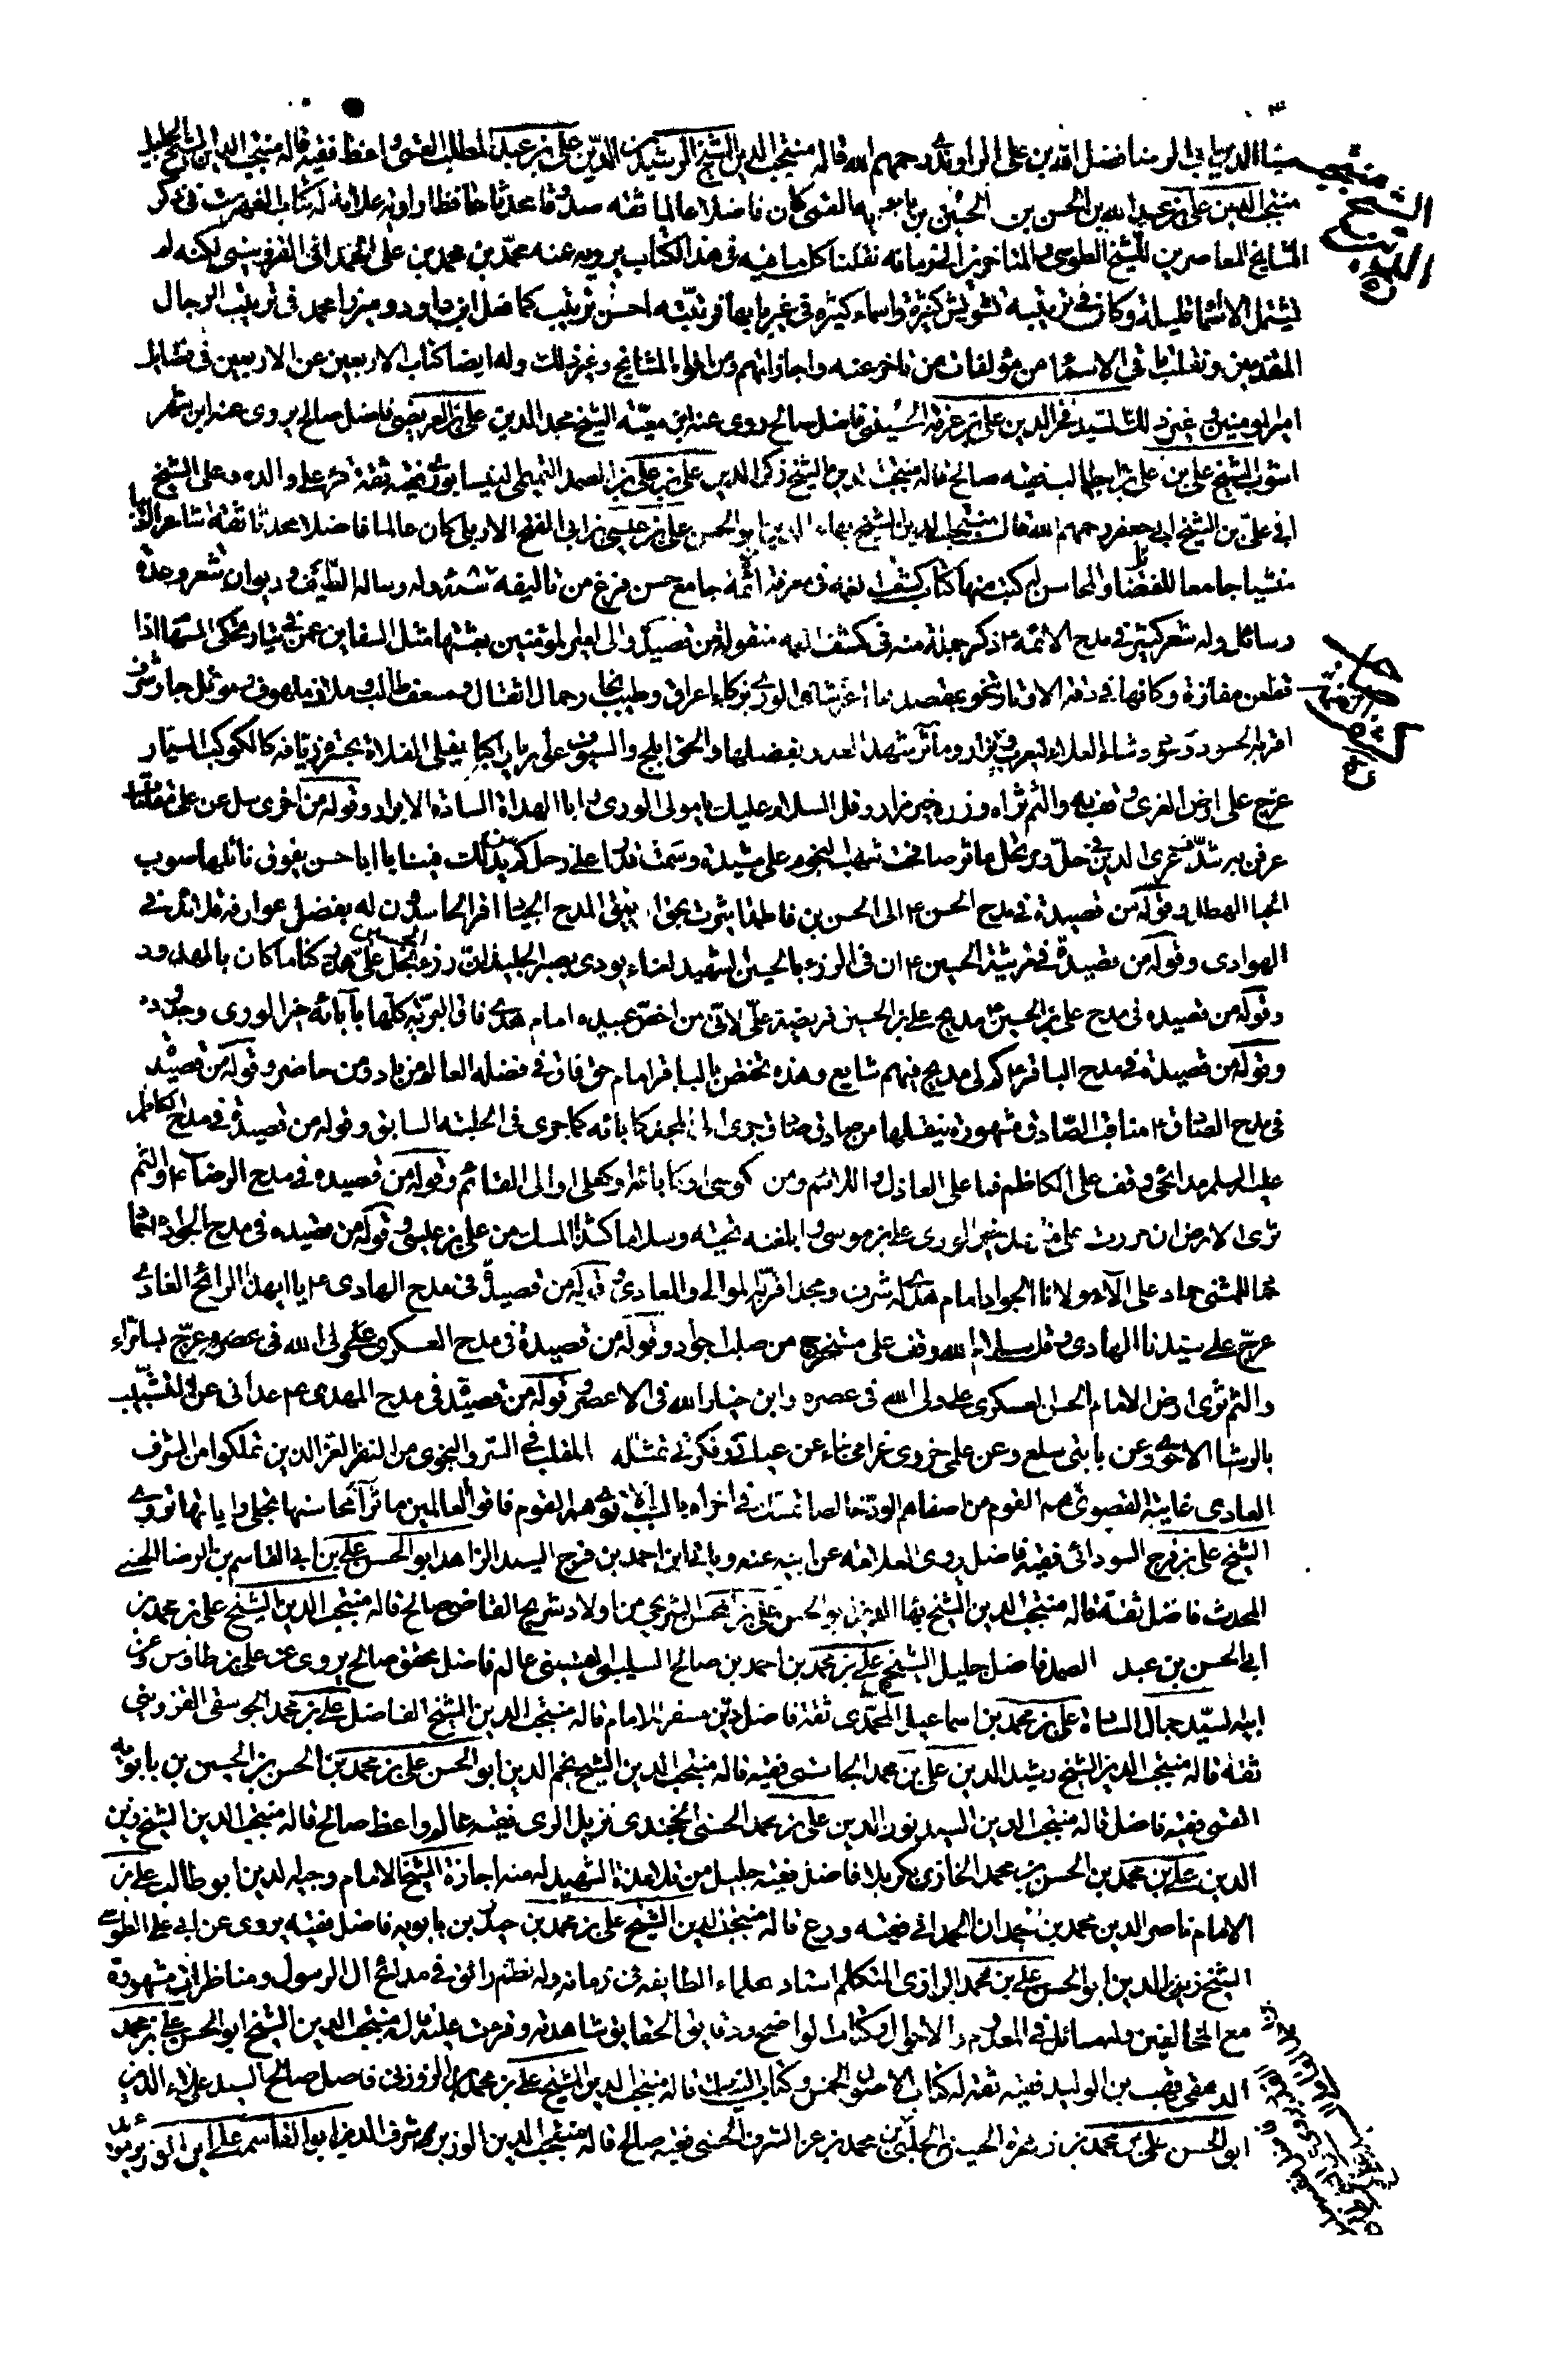 ضياء الدين ابي الرضا فضل الله بن علي الراوندي رحمهم الله قاله منتجب الدين الشيخ الرشيد الدين علي بن عبد المطلب القمي واعظ فقيه قاله منتجب الدين الشيخ الجليل
منتجب الدين علي بن عبيد الله بن الحسن بن الحسين بن بابويه القمي كان فاضلا عالما ثقه صدوقا محدثا حافظا راويه علامه له كتاب الفهرست في ذكر
المشايخ المعاصرين للشيخ الطوسي والمتاخرين الى زمانه نقلنا كل ما فيه في هذا الكتاب يرويه عنه محمد بن محمد بن علي الحمداني القزويني لكنه لم
يشتمل الا اسماء قليلة وكان في ترتيبه تشويش كثيرة واسماء كثيره في غير بابها فرتبته احسن ترتيب كما فعل ابن داود وميرزا محمد في ترتيب الرجال
المتقدمين ونقلت باقي الاسماء من مؤلفات من تاخر عنه واجازاتهم ومن افواه المشايخ وغير ذلك وله ايضا كتاب الاربعين عن الاربعين في فضائل
امير المومنين وغير ذلك السيد فخر الدين علي بن عرفه الحسيني فاضل صالح روى عنه ابن معيه الشيخ مجد الدين علي بن العريضي فاضل صالح يروى عنه ابن شهر
اشوب الشيخ علي بن علي بن ابي طالب فقيه صالح قاله منتجب الدين الشيخ زكي الدين علي بن علي بن عبد الصمد التميمي النيسابوري فقيه ثقة قرء على والده وعلى الشيخ
ابي علي بن الشيخ ابي جعفر رحمهم الله قاله منتجب الدين الشيخ بهاء الدين ابو الحسن علي بن عيسى بن ابي الفتح الاربلي كان عالما فاضلا محدثا ثقة شاعرا اديبا
منشيا جامعا للفضائل والمحاسن له كتب منها كتاب كشف الغمه في معرفة الائمة جامع حسن فرغ من تاليفه وله رساله الطيف وديوان شعر وعدة
رسائل وله شعر كثير في مدح الائمه ع ذكر جملة منه في كشف الغمه منقوله من قصيدة والى امير المومنين بعثتها مثل السفاين عمن في تيار تحكي السهام اذا
قطعن مفازة وكانها في دقه الاوتار تنحو بمقصدها اغر شاى الورى بزكاء اعراق وطيب نجار حمال اثقال ومسعف طالب وملاذ ملهوف وموئل جار شرف
اقر به الحسود وسؤدد شاد العلا ليعرب ونزار ومآثر شهد العدو بفضلها والحق ابلج والسيوف عواري يا راكبا يفلي الفلاة بجسرة زيافه كالكوكب السيار
عرج على ارض الغري وقف به والثم ثراه وزره خير مزار وقل السلام عليك يا مولى الورى وابا الهداة السادة الابرار وقوله من اخرى سل عن علي مقامات
عرفن به شدت عرى الدين في حل ومرتحل ماثر صافحت شهب النجوم علا مشيدة وسمت قدرا على زحل كم يد لك فينا يا ابا حسن يفوق نائلها صوب
الحيا الهطل وقوله من قصيدة في مدح الحسن ع الى الحسن بن فاطمة اثيرت بحق اينق المدح الجياد اقر الحاسدون له بفضل عوارفه قلائد في
الهوادى وقوله من قصيدة في مرثية الحسين ع ان في الرزء بالحسين الشهيد لعناء يودى بصبر الجليد ان رزء الحسين نجل علي هد ركنا ما كان بالمهدود
وقوله من قصيده في مدح علي بن الحسين ع مديح علي بن الحسين فريضة علي لاني من اخص عبيده امام هدى فاق البرية كلها بآبائه خير الورى وجدوده
وقوله من قصيدة في مدح الباقر ع كم لي مديح فيهم شايع وهذه تختص بالباقر امام حق فاق في فضله العالم من باد ومن حاضر وقوله من قصيدة
في مدح الصادق ع مناقب الصادق مشهورة ينقلها من صادق صادق جرى الى المجد كابائه كما جرى في الحلبه السابق وقوله من قصيدة في مدح الكاظم
عليه السلم مدائحي وقف على الكاظم فما على العاذل واللائم ومن كموسى او كابائه او كعلي والى القائم وقوله من قصيده في مدح الرضا ع والثم
ثرى الارض ان مررت على مشهد خير الورى علي بن موسى وابلغنه تحيه وسلاما كشذا المسك من علي بن عيسى وقوله من قصيده في مدح الجواد ع
حماد حماد للمثني حماد على آلاء مولانا الجواد امام هدى له شرف ومجد اقر به الموالي والمعادي وقوله من قصيدة في مدح الهادى ع يا ايهذا الرائح الغادي
عرج على سيدنا الهادي وقل سلام الله وقف على مستخرج من صلب جواد وقوله من قصيدة في مدح العسكري ع عرج بسامراء
والثم ثرى ارض الامام الحسن العسكري على ولى الله في عصره وابن خيار الله في الاعصر وقوله من قصيدة في مدح المهدى ع عداني عن التشبيب
بالرشا الاحوى وعن بانتي سلع وعن علمى حزوى غرامي بناء عن عناني وفكرتي تمثله للقلب في السر والنجوى من النفر الغر الذين تملكوا من الشرف
العادى غاية القصوى هم القوم من اصفاهم الود خالصا تمسك في اخراه بالسبب الاقوى هم القوم فاقوا العالمين ماثرا محاسنها تجلى واياتها تروى
الشيخ علي بن فرج السودائي فقيه فاضل روى العلامه عن ابيه عنه وياتي ابن احمد بن فرج السيد الزاهد ابو الحسن علي بن ابي القاسم بن الرضا الحسني
المحدث فاضل ثقة قاله منتجب الدين الشيخ بهاء الدين ابو الحسن علي بن المحسن الشريحي من اولاد شريح القاضي صالح قاله منتجب الدين الشيخ علي بن محمد بن
ابي الحسن بن عبد الصمد فاضل جليل الشيخ علي بن محمد بن احمد بن صالح السيبي القسيني عالم فاضل محقق صالح يروى عن علي بن طاوس وعن
ابيه السيد جمال السادة علي بن محمد بن اسماعيل المحمدي ثقة فاضل دين سفر الامام قاله منتجب الدين الشيخ الفاضل علي بن محمد الجوسقي القزويني
ثقة قاله منتجب الدين الشيخ رشيد الدين علي بن محمد الجاستي فقيه قاله منتجب الدين الشيخ نجم الدين ابو الحسن علي بن محمد بن الحسن بن الحسين بن بابويه
القمي فقيه فاضل قاله منتجب الدين السيد نور الدين علي بن محمد الحسني الخجندي نزيل الري فقيه عالم واعظ صالح قاله منتجب الدين الشيخ زين
الدين علي بن محمد بن الحسن بن محمد الخازن بكربلا فاضل فقيه جليل من تلامذة الشهيد له منه اجازة الشيخ الامام وجيه الدين ابو طالب علي بن
الامام ناصر الدين محمد بن حمدان الحمداني فقيه ورع قاله منتجب الدين الشيخ علي بن محمد بن حيدر بن بابويه فاضل فقيه يروى عن ابي علي الطوسي
الشيخ زين الدين ابو الحسن علي بن محمد الرازي المتكلم استاد علماء الطايفه في زمانه وله نظم رائق في مدائح ال الرسول ومناظرات مشهورة
مع المخالفين وله مسائل في المعدوم والاحوال وكتاب الواضح ودقايق الحقايق شاهدته وقرءت عليه قاله منتجب الدين الشيخ ابو الحسن علي بن محمد
بن الوليد فقيه ثقه له كتاب الاصول الخمس وكتاب النيات قاله منتجب الدين الشيخ علي بن محمد الزوزني فاضل صالح السيد علاء الدين
ابو الحسن علي بن محمد بن زهرة الحسيني الحلبي بن محمد بن عز الشرف الحسني فقيه صالح قاله منتجب الدين الوزير شرف الدين ابو القاسم علي ابن الوزير
الشيخ منتجب
الدين
صاحب كشف
الغمة